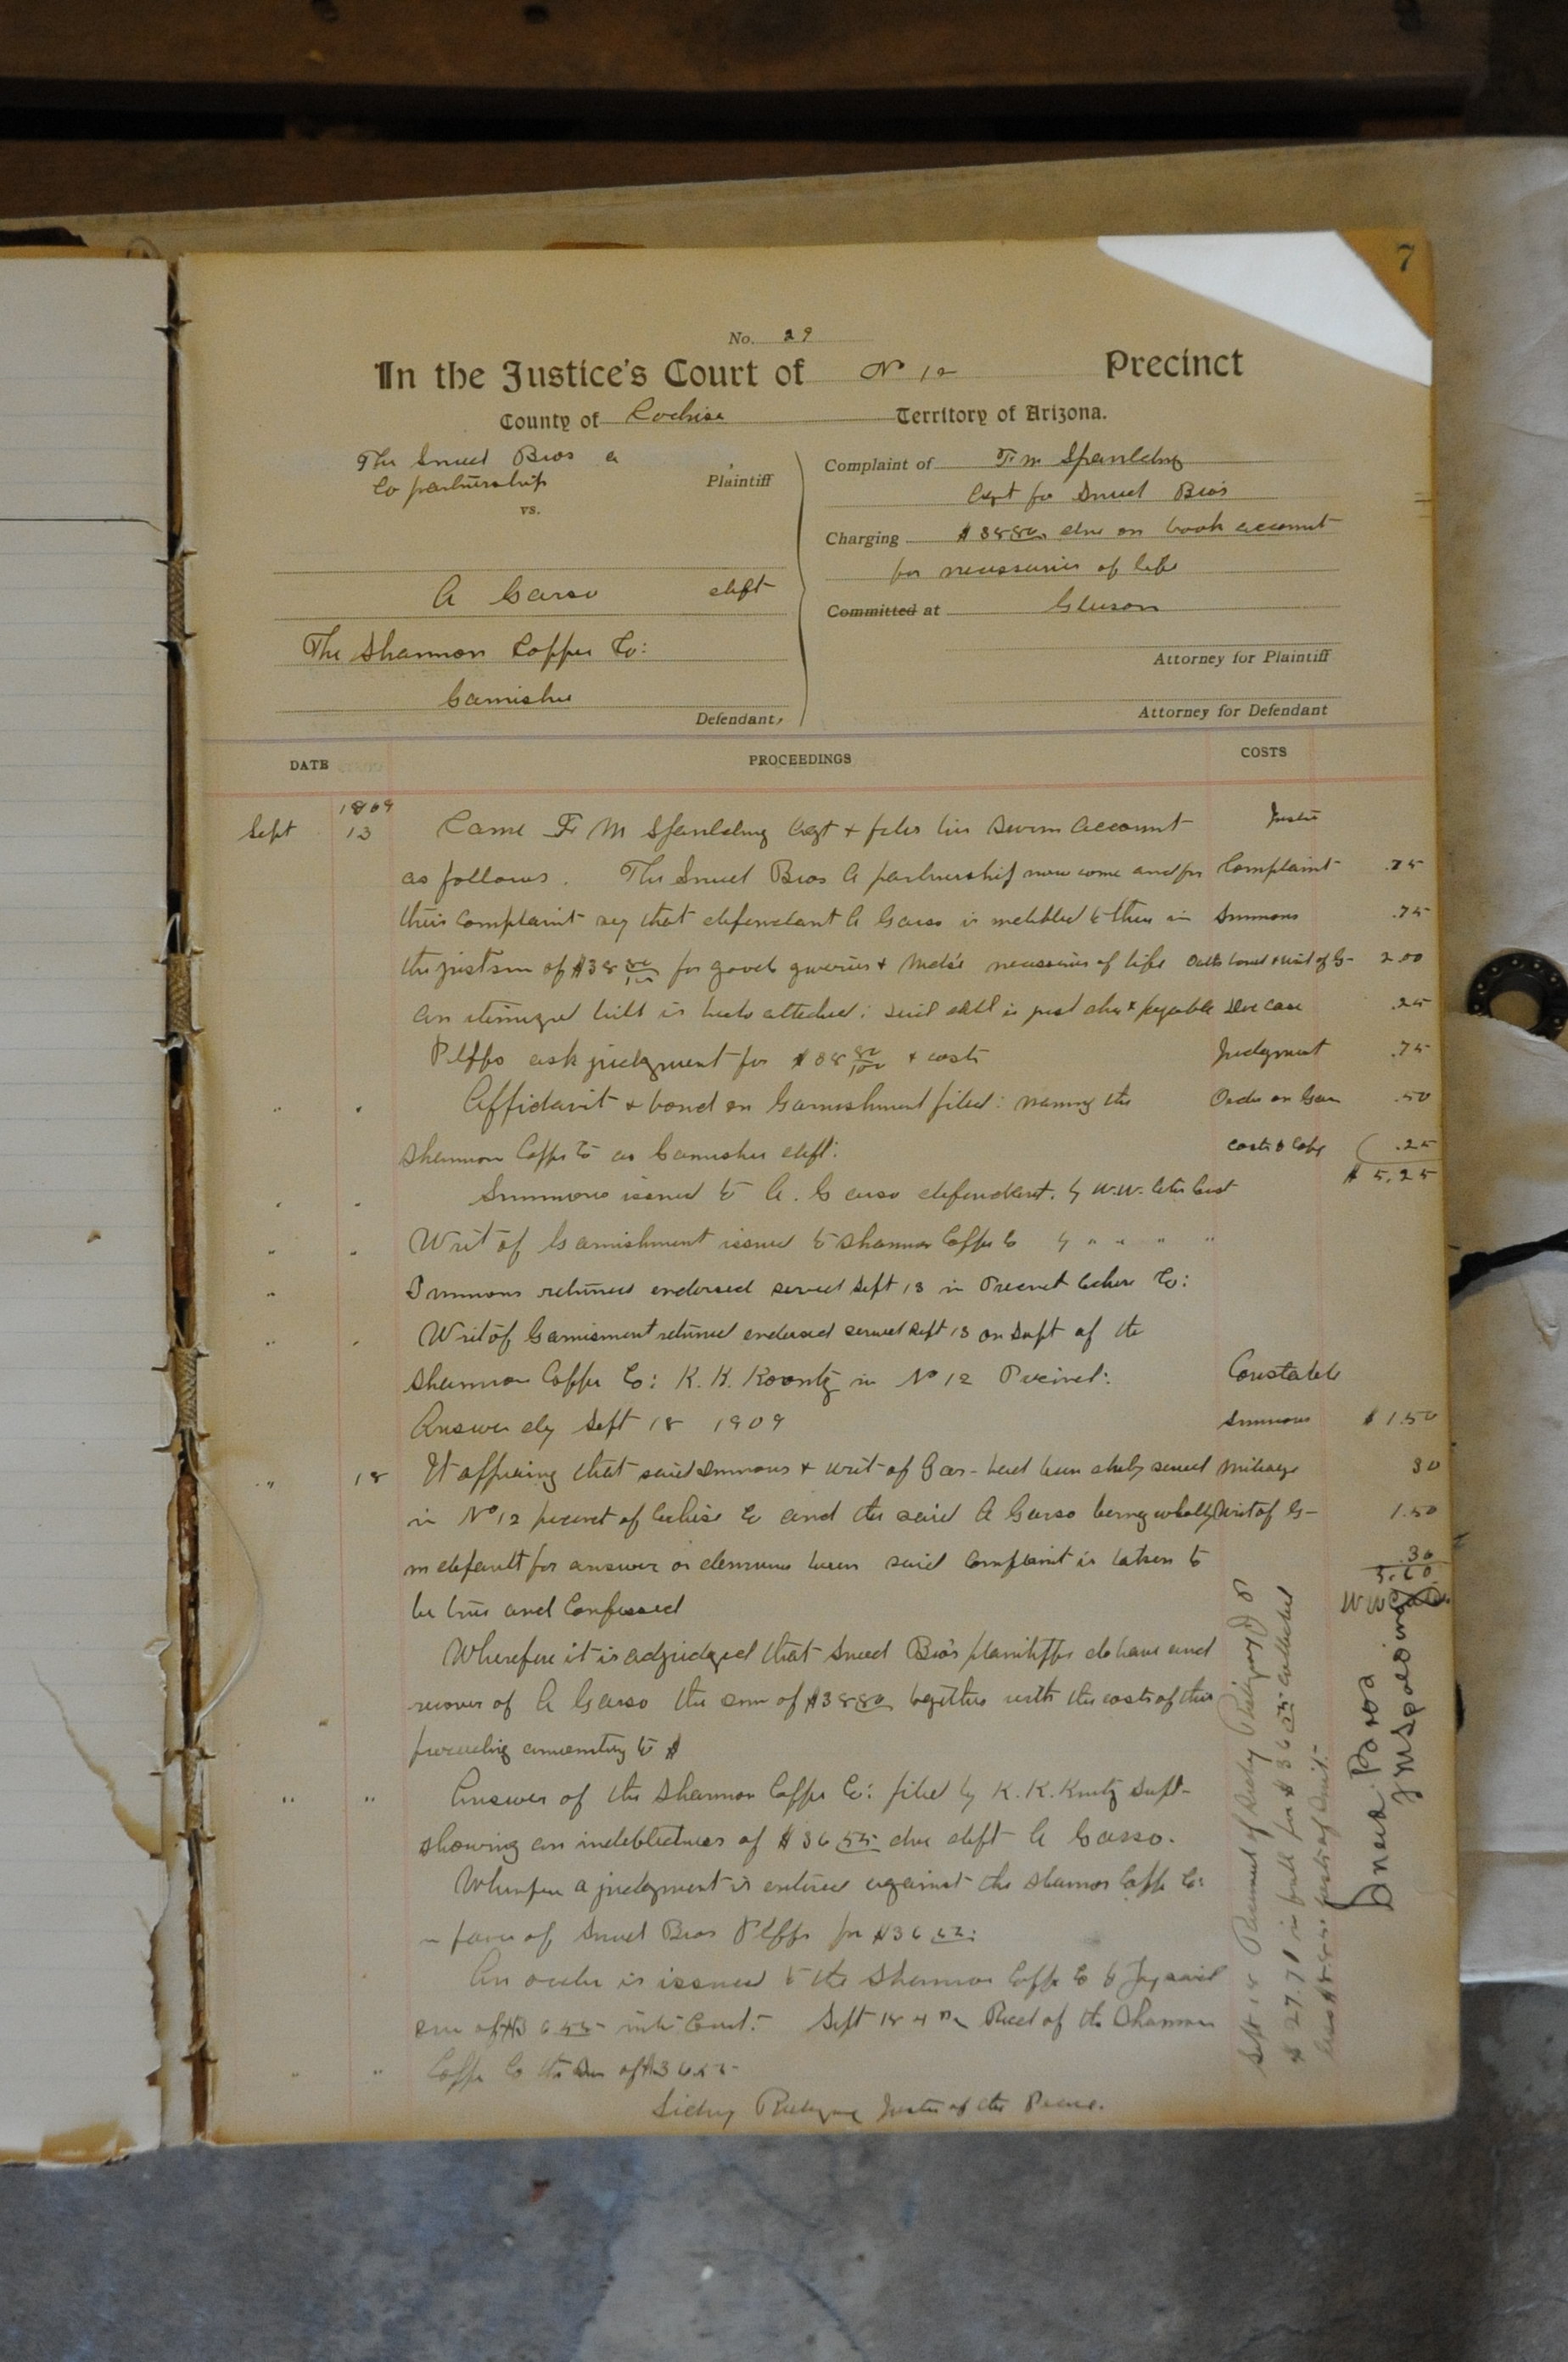 7
No. 29
In the Justice's Court of No 12 Precinct
County of Cochise Territory of Arizona.
The Sneed Bros a
Co partnership Plaintiff
vs.
A Gasso deft
The Shannon Copper Co:
Garnishee
Defendant,
Complaint of F. M Spaulding
Agt for Sneed Bros
Charging $38 80 due on book account
for necessaries of life
Committed at Gleeson
Attorney for Plaintiff
Attorney for Defendant
DATE PROCEEDINGS COSTS
1909
Sept 13 Came F M Spaulding Agt + files his sworn account Justice
as follows. The Sneed Bros A partnership now come and for Complaint .75
their complaint say that defendant A Gasso is indebted to them in Summons .75
the just sum of $38 80/100 for goods groceries + Mdse necessaries of life 2.00
An itemized bill is hereto attached: said debt is just due + payable Doc Case .25
Plffs ask judgment for $38 80/100 + costs Judgment .75
" " Affidavit + bond on Garnishment filed: naming the Order on Gar .50
Shannon Copper Co as Garnishee deft: .25
$ 5.25
" " Summons issued to A. Gasso defendant. by W.W.
" " Writ of Garnishment issued to Shannon Copper Co by " " " "
" Summons returned endorsed served Sept 13 in Precinct Cochise Co:
" " Writ of Garnisment returned endorsed served Sept 13 on Supt of the
Shannon Copper Co: K. K. Koontz in No 12 Precinct: Constable
Answer day Sept 18 1909 Summons $ 1.50
" 18 It appearing that said Summons + writ of Gar- had been duly served Mileage 30
in No 12 precinct of Cochise Co and the said A Gasso being wholly Writ of G- 1.50
in default for answer or demurrer herein said Complaint is taken to .30
be true and Confessed 3.60
Wherefore it is adjudged that Sneed Bros plaintiffs do have and
recover of A Gasso the sum of $38 80 together with the costs of this
proceeding amounting to $
" " Answer of the Shannon Copper Co: filed by K. K. Kuntz Supt-
showing an indebtedness of $36 55 due deft A Gasso.
Wherefore a judgment is entered against the Shannon Copper Co:
in favor of Sneed Bros Plffs for $36 55:
An order is issued to the Shannon Copper Co to pay said
sum of $36 55 into Court.- Sept 18 Recd of the Shannon
" " Copper Co the sum of $36.55
Justice of the Peace.
Sept 18 Received of
$ 27.71 in full for $36 55 collected
less costs of Suit.-
Sneed Bros